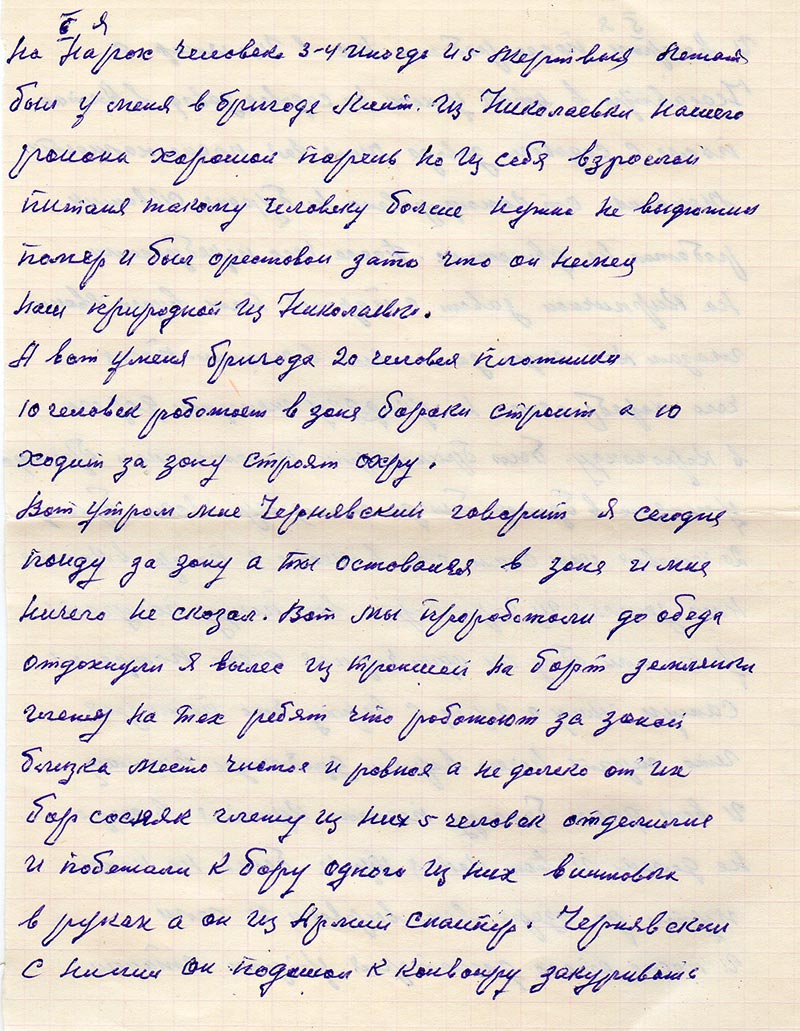 я
на Нарох человека 3-4 иногда и 5 мертвыя
был у меня в бригаде из Николаевки нашего
района хорошой парень но из себя взрослай
питаня такому человеку более нужна не выдюжил
помер и был орестовон зато что он Немец
наш природной из Николаевки.
А вот уменя бригада 20 человек плотники
10 человек роботоет в зоне бораки строит а 10
ходит за зону строят охру.
Вот утром мне Чернявский говорит я сегодня
поиду за зону а ты остоваися в зоне и мне
ничего не сказал. Вот мы пророботоли до обеда
отдохнули я вылес из троншей на борт землянки
гляжу на тех ребят что роботоют за зоной
близка место чистоя и ровноя а не долеко от их
бор сосняк гляжу из них 5 человек отделилися
и побежали к бору одного из них винтовка
в руках а он из Армии снаипер. Чернявскии
с ними он подошол к конвоиру закуривать